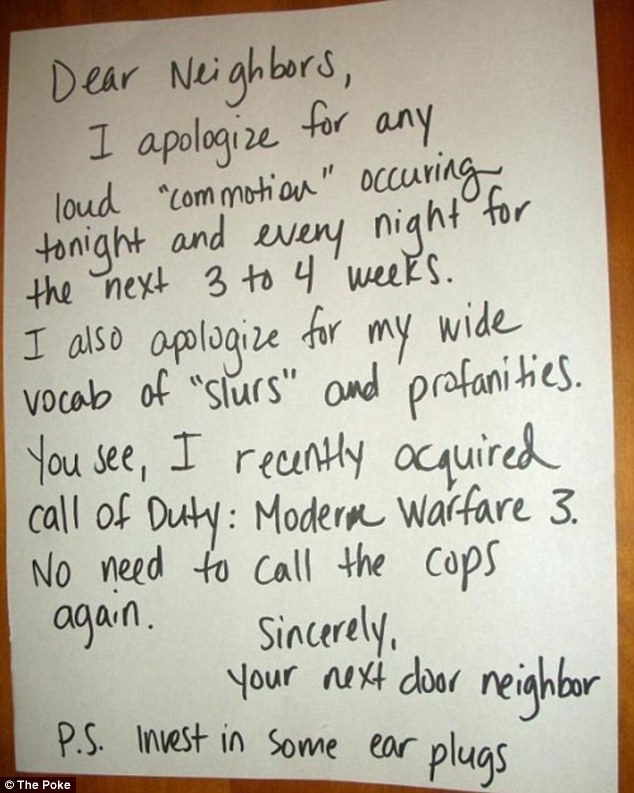 Dear Neighbors,
I apologize for any
loud "commotion" occuring
tonight and every night for
the next 3 to 4 weeks.
I also apologize for my wide
vocab of "slurs" and profanities.
You see, I recently acquired
Call of Duty: Modern Warfare 3.
No need to call the cops
again.
Sincerely,
Your next door neighbor
P.S. Invest in some ear plugs
© The Poke